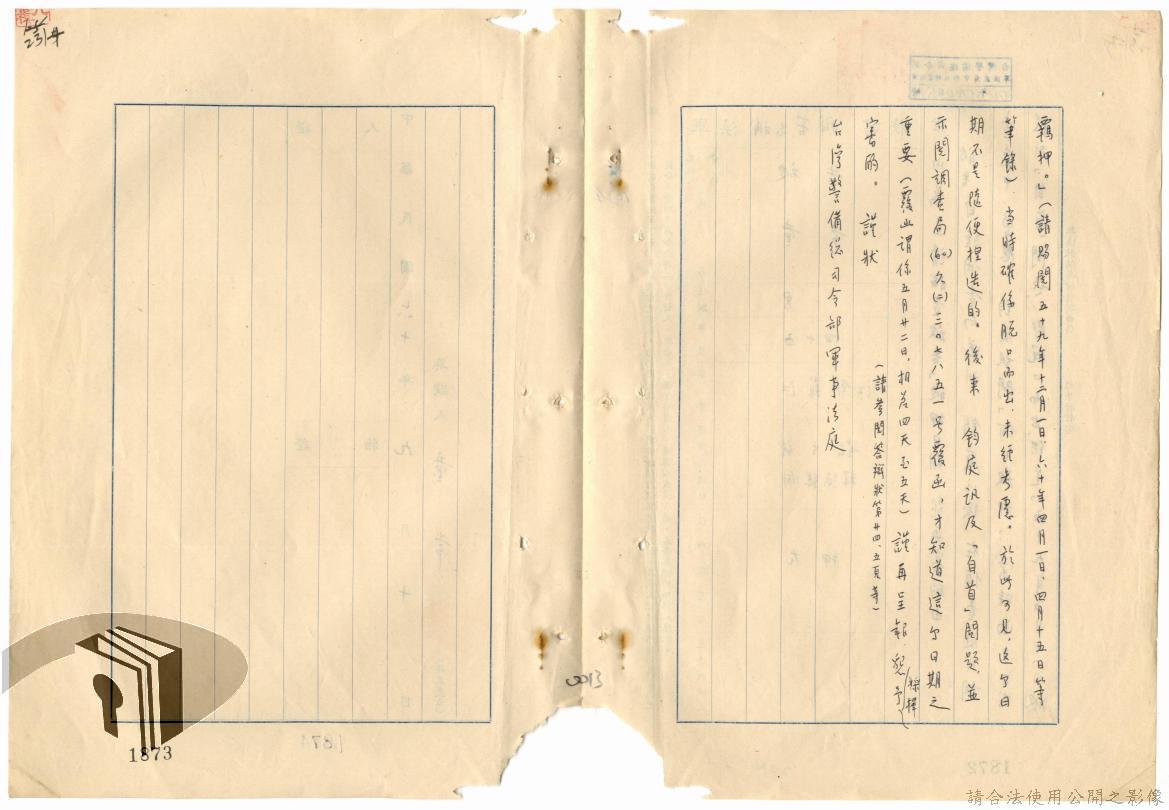 羈押。」（請賜閱五十九年十二月一日、六十年四月一日、四月十五日等
筆錄）當時確係脫口而出，未經考慮。於此可見，这个日
期不是隨便捏造的。後来 鈞庭訊及「自首」問題，並
示閱調查局(60)久(二)三〇六八五一号覆函，才知道這个日期之
重要（覆函謂係五月廿二日，相差四天至五天）謹再呈報，懇予採擇
審酌。 謹狀
（請參閱答辯狀第廿四、五頁等）
台湾警備總司令部軍事法庭
0013
1873
請合法使用公開之影像